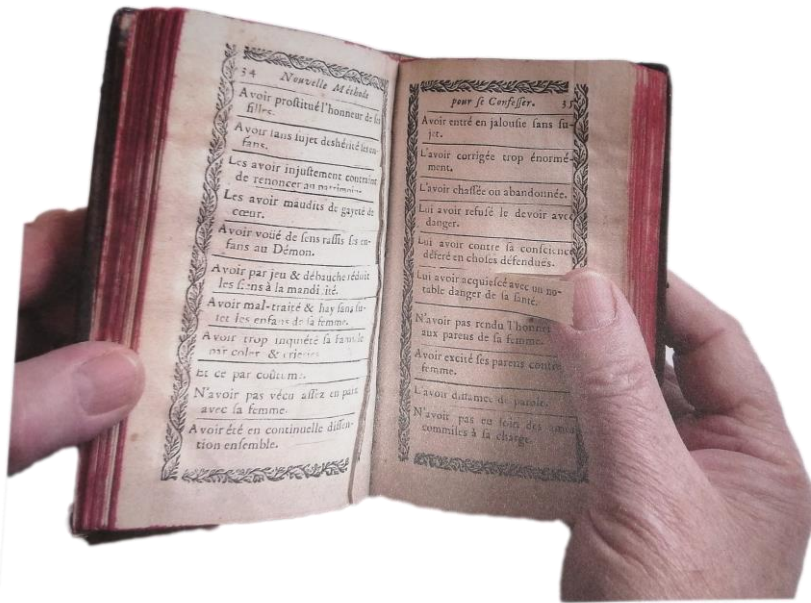 34 Nouvelle Méthode
Avoir prostitué l'honneur de ses
filles.
Avoir sans sujet desherité ses en-
fans.
Les avoir injustement contraint
de renoncer au patrimoine.
Les avoir maudits de gayeté de
cœur.
Avoir voüé de sens rassis ses en-
fans au Démon.
Avoir par jeu & débauche réduit
les siens à la mandicité.
Avoir mal-traité & hay sans su-
jet les enfans de sa femme.
Avoir trop inquiété sa famille
par coler & crieries
Et ce par coûtume.
N'avoir pas vécu assez en paix
avec sa femme.
Avoir été en continuelle dissen-
tion ensemble.
pour se Confesser. 35
Avoir entré en jalousie sans su-
jet.
L'avoir corrigée trop énormé-
ment.
L'avoir chassée ou abandonnée.
Lui avoir refusé le devoir avec
danger.
Lui avoir contre sa conscience
déferé en choses défendues.
Lui avoir acquiescé avec un no-
table danger de sa santé.
N'avoir pas rendu l'honneur
aux parens de sa femme.
Avoir excité ses parens contre
femme.
L'avoir diffamée de parole.
N'avoir pas eu soin des
commises à sa charge.